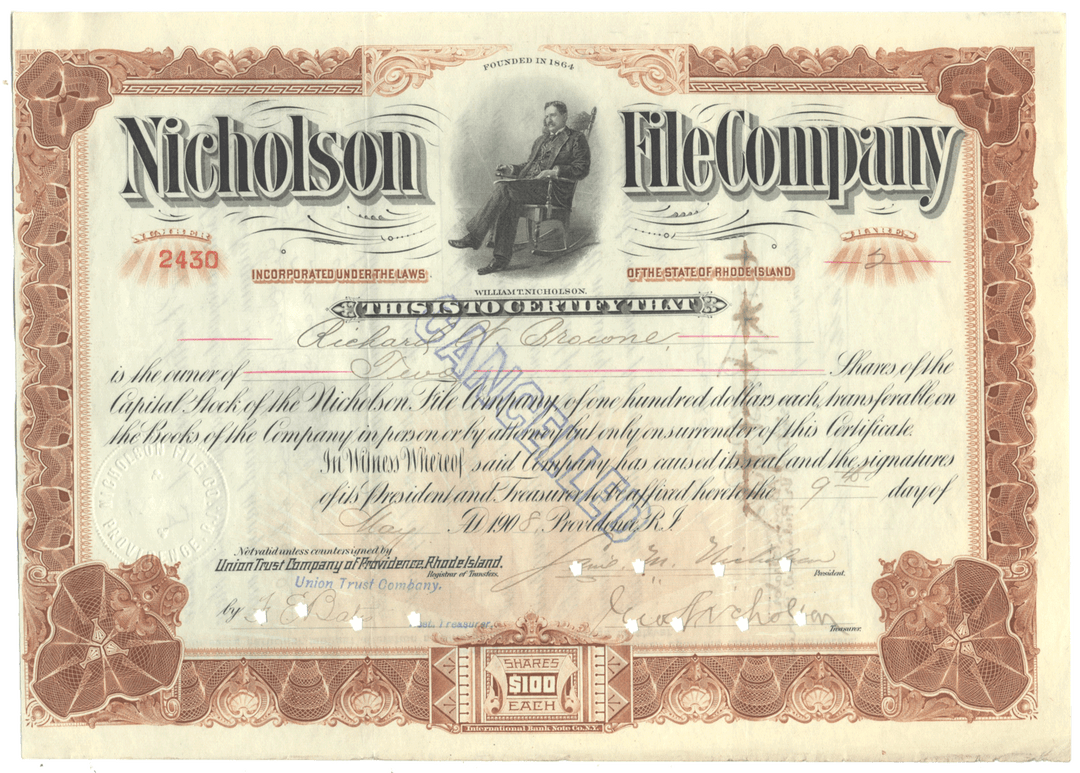 FOUNDED IN 1864
Nicholson File Company
2430
2
INCORPORATED UNDER THE LAWS OF THE STATE OF RHODE ISLAND
WILLIAM T. NICHOLSON.
THIS IS TO CERTIFY THAT
Richard Browne,
is the owner of Two Shares of the
Capital Stock of the Nicholson File Company, of one hundred dollars each, transferable on
the Books of the Company in person or by attorney but only on surrender of this Certificate.
In Witness Whereof said Company has caused its seal and the signatures
of its President and Treasurer to be affixed hereto the 9th day of
May A.D. 1908. Providence, R.I.
CANCELLED
NICHOLSON FILE CO.
PROVIDENCE
Not valid unless countersigned by
Union Trust Company of Providence, Rhode Island.
Registrar of Transfers.
Union Trust Company.
by
Treasurer.
Nicholson
President.
Nicholson
Treasurer.
SHARES
$100
EACH
International Bank Note Co. N.Y.